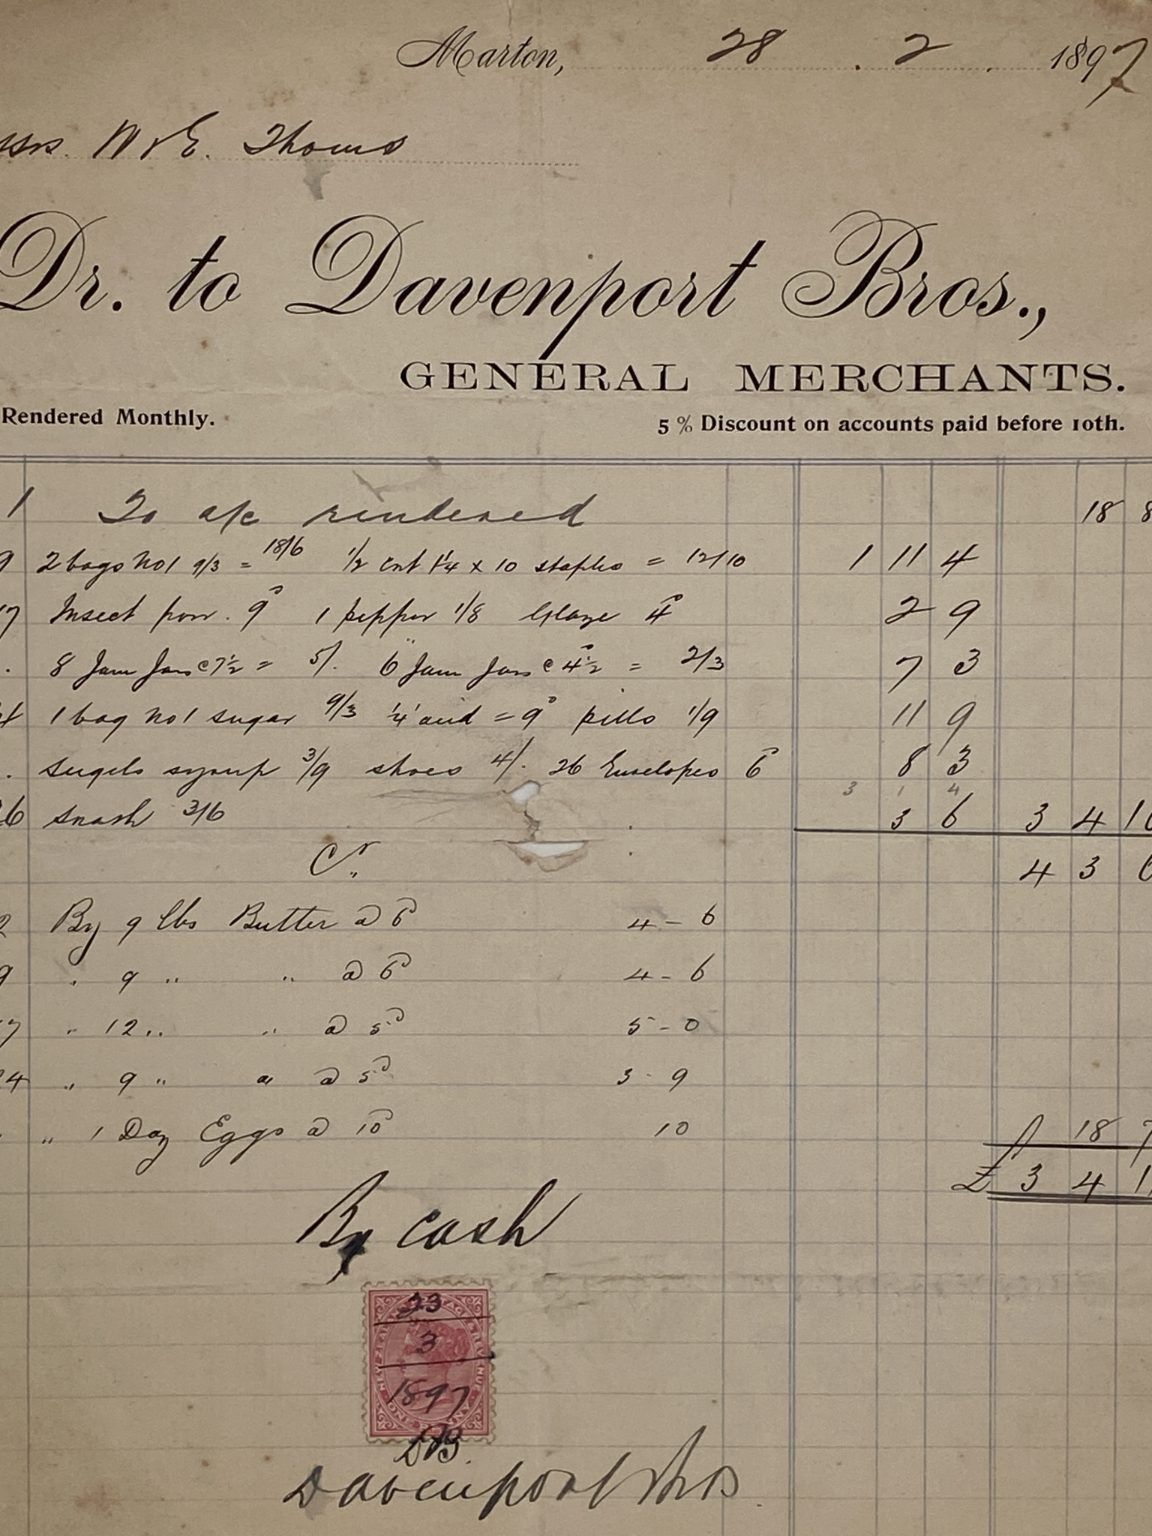 Marton, 28 . 2 . 1897
W & E. Thoms
Dr. to Davenport Bros.,
GENERAL MERCHANTS.
Rendered Monthly.
5 % Discount on accounts paid before 10th.
1 To a/c rendered 18 8
9 2 bags No 1 9/3 = 18/6 ½ cwt 1¼ x 10 staples = 12/10 1 11 4
7 Insect pow. 9d 1 pepper 1/8 Glaze 4d 2 9
. 8 Jam Jars @ 7½ = 5/. 6 Jam Jars @ 4½ = 2/3 7 3
4 1 bag No 1 sugar 9/3 ¼ acid = 9d pills 1/9 11 9
. syrup 3/9 shoes 4/. 26 Envelopes 6d 8 3
3 1 4
26 3/6 3 6 3 4 10
Cr. 4 3 6
2 By 9 lbs Butter @ 6d 4 - 6
9 " 9 " " @ 6d 4 - 6
7 " 12 " " @ 5d 5 - 0
24 " 9 " " @ 5d 3 - 9
. " 1 Doz Eggs @ 10d 10 18 7
£ 3 4 11
By cash
23
3
1897
DB
Davenport Bros